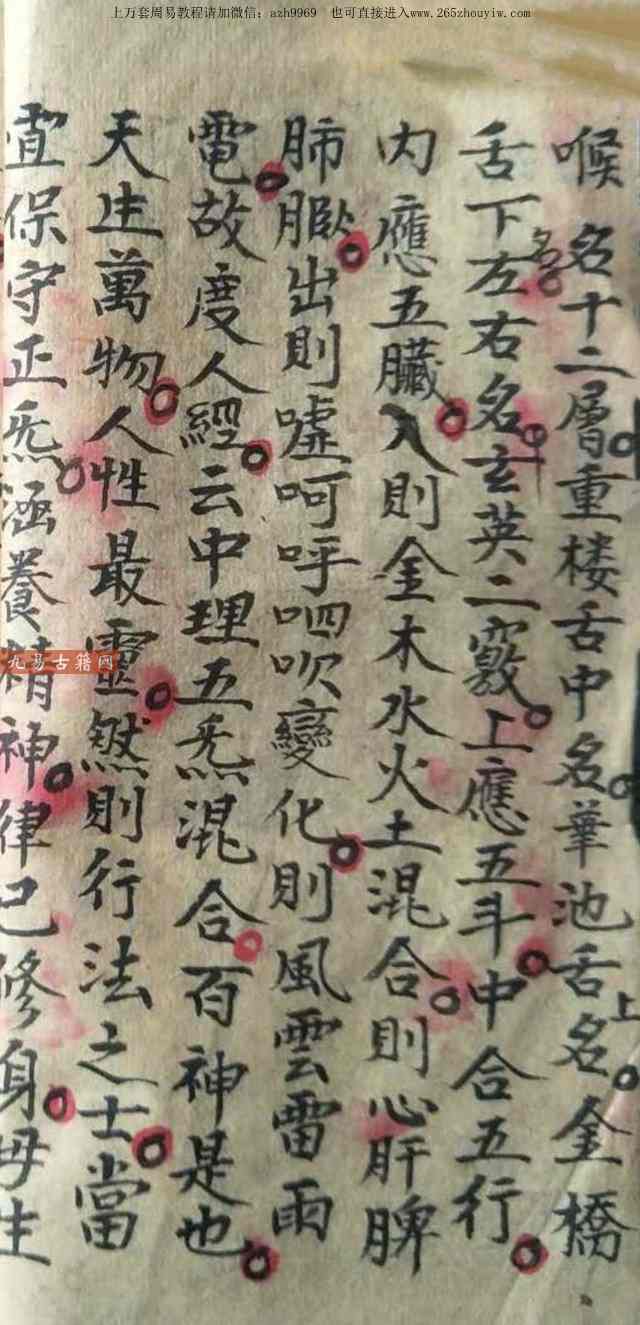 上万套周易教程请加微信：azh9969　也可直接进入www.265zhouyiw.com
喉名十二層重楼舌中名華池舌上名金橋
舌下左右名玄英二竅上應五斗中合五行
内應五臟入則金木水火土混合則心肝脾
肺出則噓呵呼呬吹變化則風雲雷雨
電故度人經云中理五炁混合百神是也
天生萬物人性最靈然則行法之士當
宜保守正炁涵養精神律己修身毋生
九易古籍网